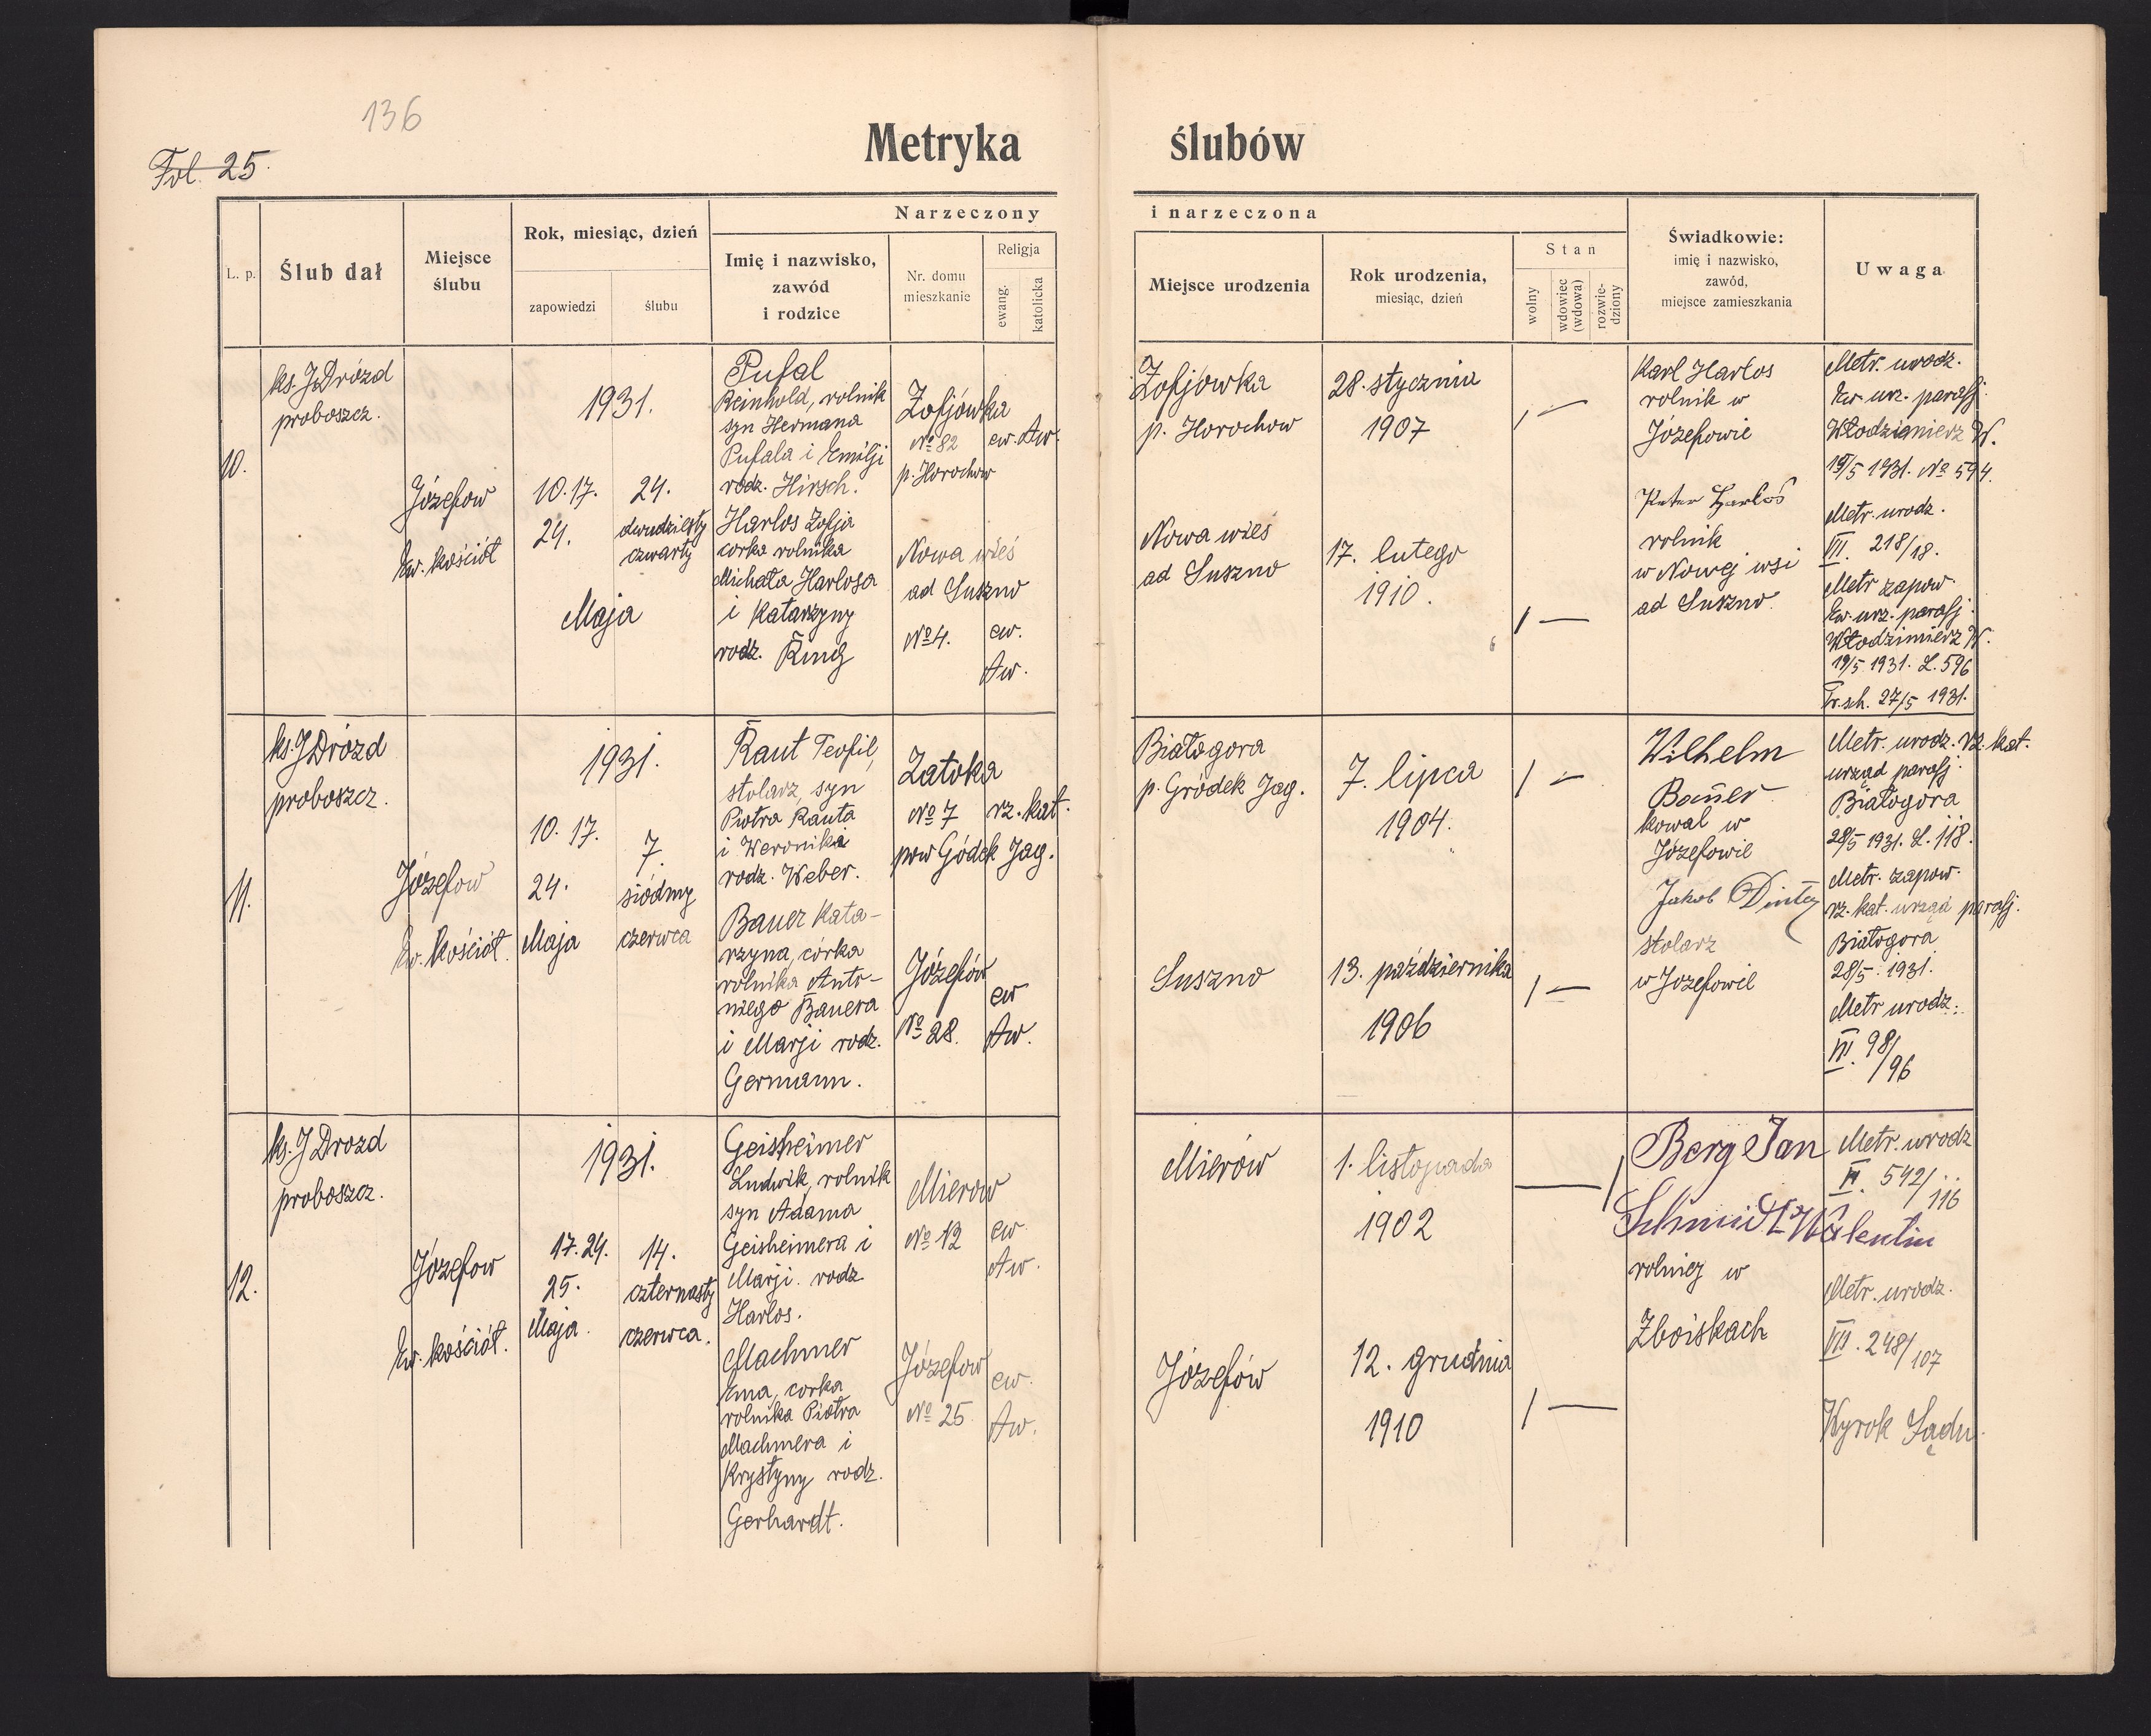 136
Fol. 25.
Metryka ślubów
L. p.
Ślub dał
Miejsce
ślubu
Rok, miesiąc, dzień
zapowiedzi
ślubu
Narzeczony
Imię i nazwisko,
zawód
i rodzice
Nr. domu
mieszkanie
Religja
ewang.
katolicka
i narzeczona
Miejsce urodzenia
Rok urodzenia,
miesiąc, dzień
Stan
wolny
wdowiec
(wdowa)
rozwie-
dziony
Świadkowie:
imię i nazwisko,
zawód,
miejsce zamieszkania
Uwaga
10.
ks. J. Drózd
proboszcz.
Józefow
Ew. kościół
1931.
10. 17.
24.
24.
dwudziesty
czwarty
Maja
Pufal
Reinhold, rolnik
syn Hermana
Pufala i Emilji
rodz. Hirsch.
Harlos Zofja
corka rolnika
Michała Harlosa
i Katarzyny
rodz. King
Zofjówka
No 82
p. Horochow
ew. Aw.
Nowa wieś
ad Suszno
No 4.
ew.
Aw.
Zofjówka
p. Horochow
Nowa wieś
ad Suszno
28. stycznia
1907
17. lutego
1910.
1 —
1 —
Karl Harlos
rolnik w
Józefowie
Peter Harlos
rolnik
w Nowej wsi
ad Suszno
Metr. urodz.
Ew. urz. parafj.
Włodzimierz W.
19/5 1931. No 594.
Metr. urodz.
VII. 218/18.
Metr zapow.
Ew. urz. parafj.
Włodzimierz W.
19/5 1931. L. 596
Tr. sch. 27/5 1931.
11.
ks. J Drózd
proboszcz.
Józefow
Ew. kościół.
1931.
10. 17.
24.
Maja
7.
siódmy
czerwca
Raut Teofil,
stolarz, syn
Piotra Rauta
i Weroniki
rodz. Weber.
Bauer Kata-
rzyna, córka
rolnika Anto-
niego Bauera
i Marji rodz.
Germann.
Zatoka
No 7
pow Gódek Jag.
rz. kat.
Józefów
No 28.
ew
Aw.
Białogora
p. Gródek Jag.
Suszno
7. lipca
1904.
13. października
1906
1 —
1 —
Wilhelm
Bauer
kowal w
Józefowie
Jakob
stolarz
w Jozefowie
Metr. urodz. rz. kat.
urząd parafj.
Białogora
28/5 1931. L. 118.
Metr. zapow.
rz. kat. urząd parafj.
Białogora
28/5. 1931.
Metr urodz.
VII. 98/96
12.
ks. J Drozd
proboszcz.
Józefow
Ew. kościół.
1931.
17. 24.
25.
Maja.
14.
czternasty
czerwca.
Geisheimer
Ludwik, rolnik
syn Adama
Geisheimera i
Marji. rodz
Harlos.
Machmer
Ema, corka
rolnika Piotra
Machmera i
Krystyny rodz.
Gerhardt.
Mierow
No 12
ew
Aw.
Józefow
No 25
ew.
Aw.
Mierów
Józefów
1. listopada
1902
12. grudnia
1910
— 1
1 —
Berg Jan
Schmidt Walentin
rolnicy w
Zboiskach
Metr. urodz
VI. 542/116
Metr. urodz.
VII. 248/107
Wyrok Sądu.